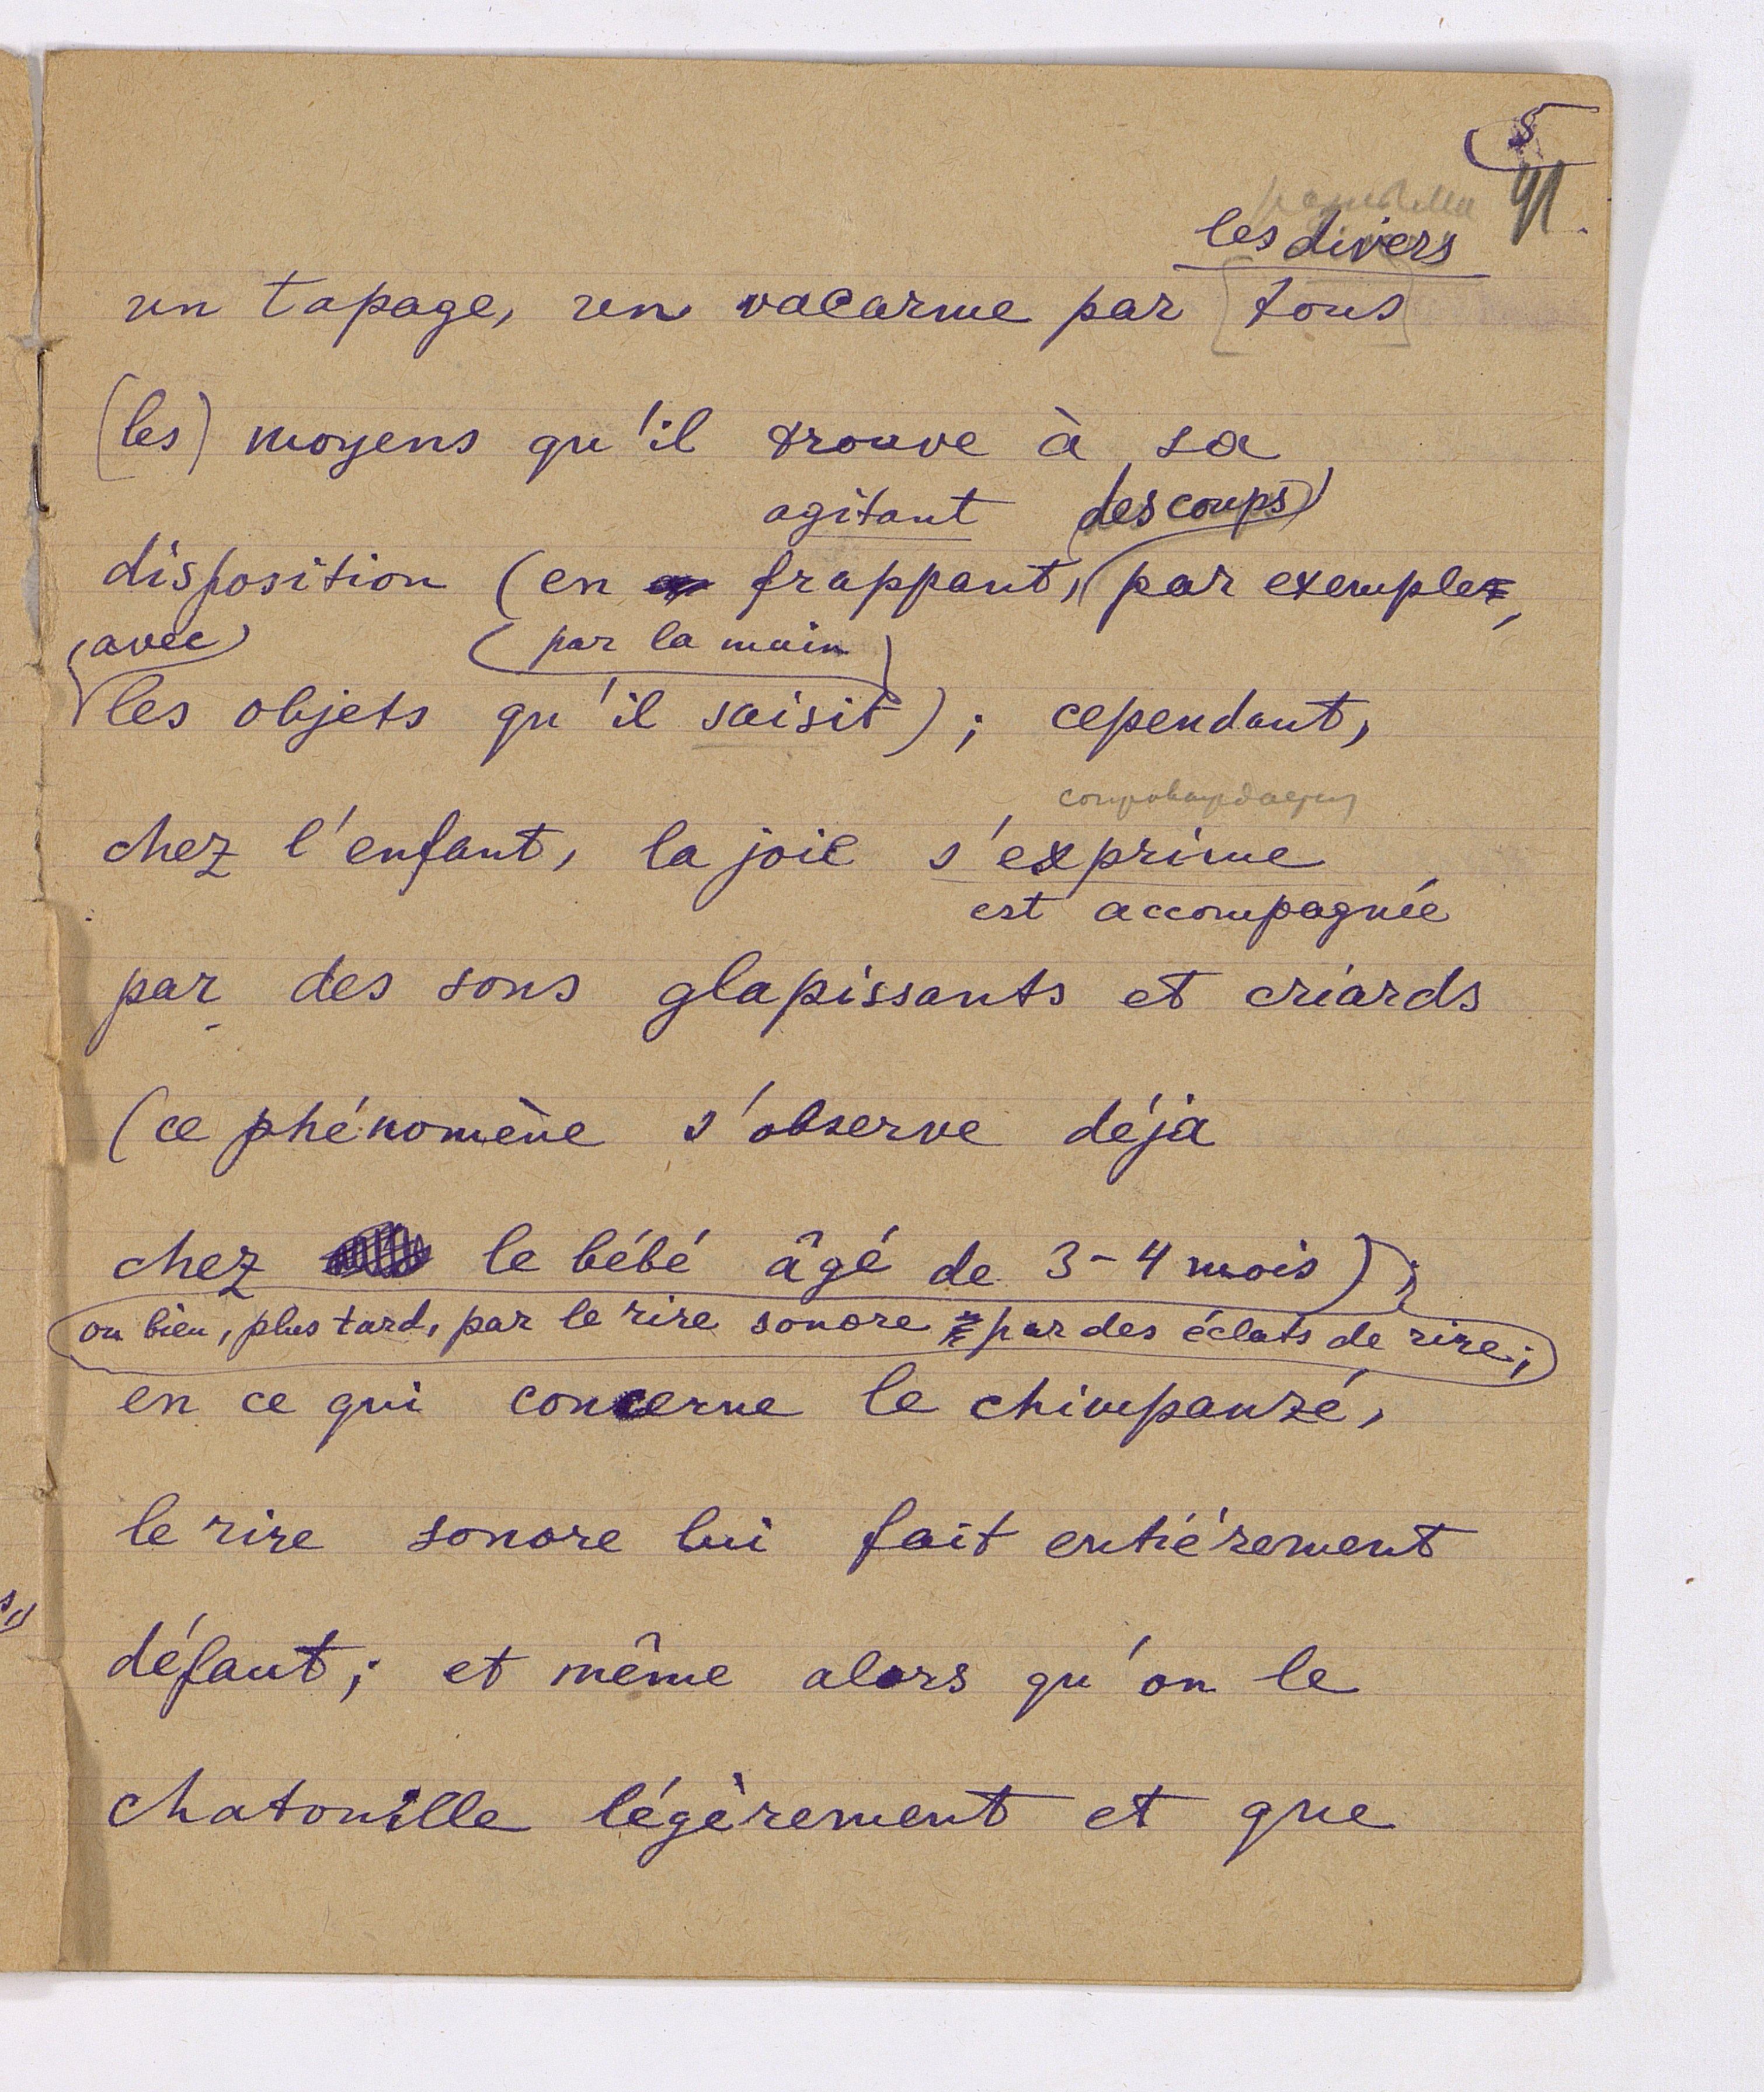 5
41.
les divers
un tapage, un vacarme par [tous]
(les) moyens qu'il trouve à sa
agitant (des coups)
disposition (en frappant, par exemple,
(avec) (par la main)
les objets qu'il saisit); cependant,
chez l'enfant, la joie s'exprime
est accompagnée
par des sons glapissants et criards
(ce phénomène s'observe déjà
chez le bébé âgé de 3-4 mois);
ou bien, plus tard, par le rire sonore par des éclats de rire;
en ce qui concerne le chimpanzé,
le rire sonore lui fait entiérement
défaut; et même alors qu'on le
chatouille légèrement et que